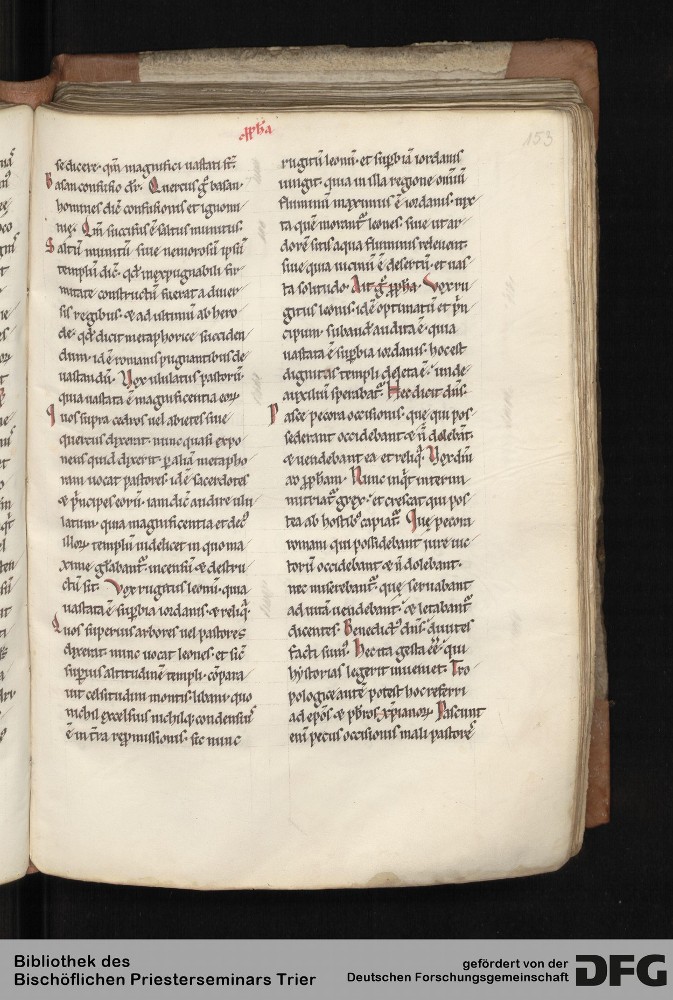 153
se dicere · qm̄ magnifici uastati st̄ ·
Basan confusio dr̄ · Quercus g̊ basan ·
homines dic̄ confusionis et ignomi
nię · Qm̄ succisus ē saltus munitus ·
Saltū munitū siue nemorosū ipsū
templū dic̄ · qd̓ inexpugnabili fir
mitate constructū fuerat a diuer
sis regibus · & ad ultimū ab hero
de · qd̓ dicit metaphorice succiden
dum · id ē romanis pugnantibus de
uastandū · Vox ululatus pastorū ·
quia uastata ē magnificentia eoꝝ
Quos supra cedros uel abietes siue
quercus dixerat · nunc quasi expo
nens quid dixerit · ꝑ aliā metapho
ram uocat pastores · id ē sacerdotes
& p̓ncipes eorū · iam dic̄ audire ulu
latum · quia magnificentia et decꝰ
illoꝝ templū uidelicet in quo ma
xime gl̄abant᷑ · incensū & destru
ctū sit · Vox rugitus leonū · quia
uastata ē suꝑbia iordanis · & reliq̓ ·
Quos superius arbores uel pastores
dixerat · nunc uocat leones · et sic̄
suꝑius altitudinē templi · cōpara
uit celsitudini montis libani · quo
nichil excelsius nichilq; condensiꝰ
ē in tr̄a repromissionis · sic nunc
rugitū leonū · et suꝑbiā iordanis
iungit · quia in illa regione omniū
fluminū maximus ē iordanis · iux
ta quē morant᷑ leones · siue ut ar
dorē sitis aqua fluminis releuent ·
siue quia uicinū ē desertū · et uas
ta solitudo · Ait g̊ ꝓph̄a · Vox ru
gitus leonis · id ē optimatū et p̓n
cipum · subaud̓ audita ē · quia
uastata ē suꝑbia iordanis · hoc est
dignitas templi deleta ē · unde
auxiliū sperabat᷑ · Hec dicit dn̄s ·
Pasce pecora occisionis · quę qui pos
sederant occidebant · & n̄ dolebāt ·
& uendebant ea · et reliq̓ · Verba dn̄i
ad ꝓph̄am · Nunc inq̓t interim
nutriat᷑ grex · et crescat qui pos
tea ab hostibꝰ capiat᷑ · Quę pecora
romani qui possidebant iure uic
torū occidebant · & n̄ dolebant ·
nec miserebant᷑ · quę seruabant
ad uitā uendebant · & letabant᷑
dicentes · Benedictꝰ dn̄s · diuites
facti sumꝰ · Hec ita gesta ēē · qui
hystorias legerit inueniet · Tro
pologice autē potest hoc referri
ad ep̄os · & pb̄ros xp̄ianoꝝ · Pascunt
eni pecus occisionis mali pastores
Bibliothek des
Bischöflichen Priesterseminars Trier
gefördert von der
Deutschen Forschungsgemeinschaft
DFG